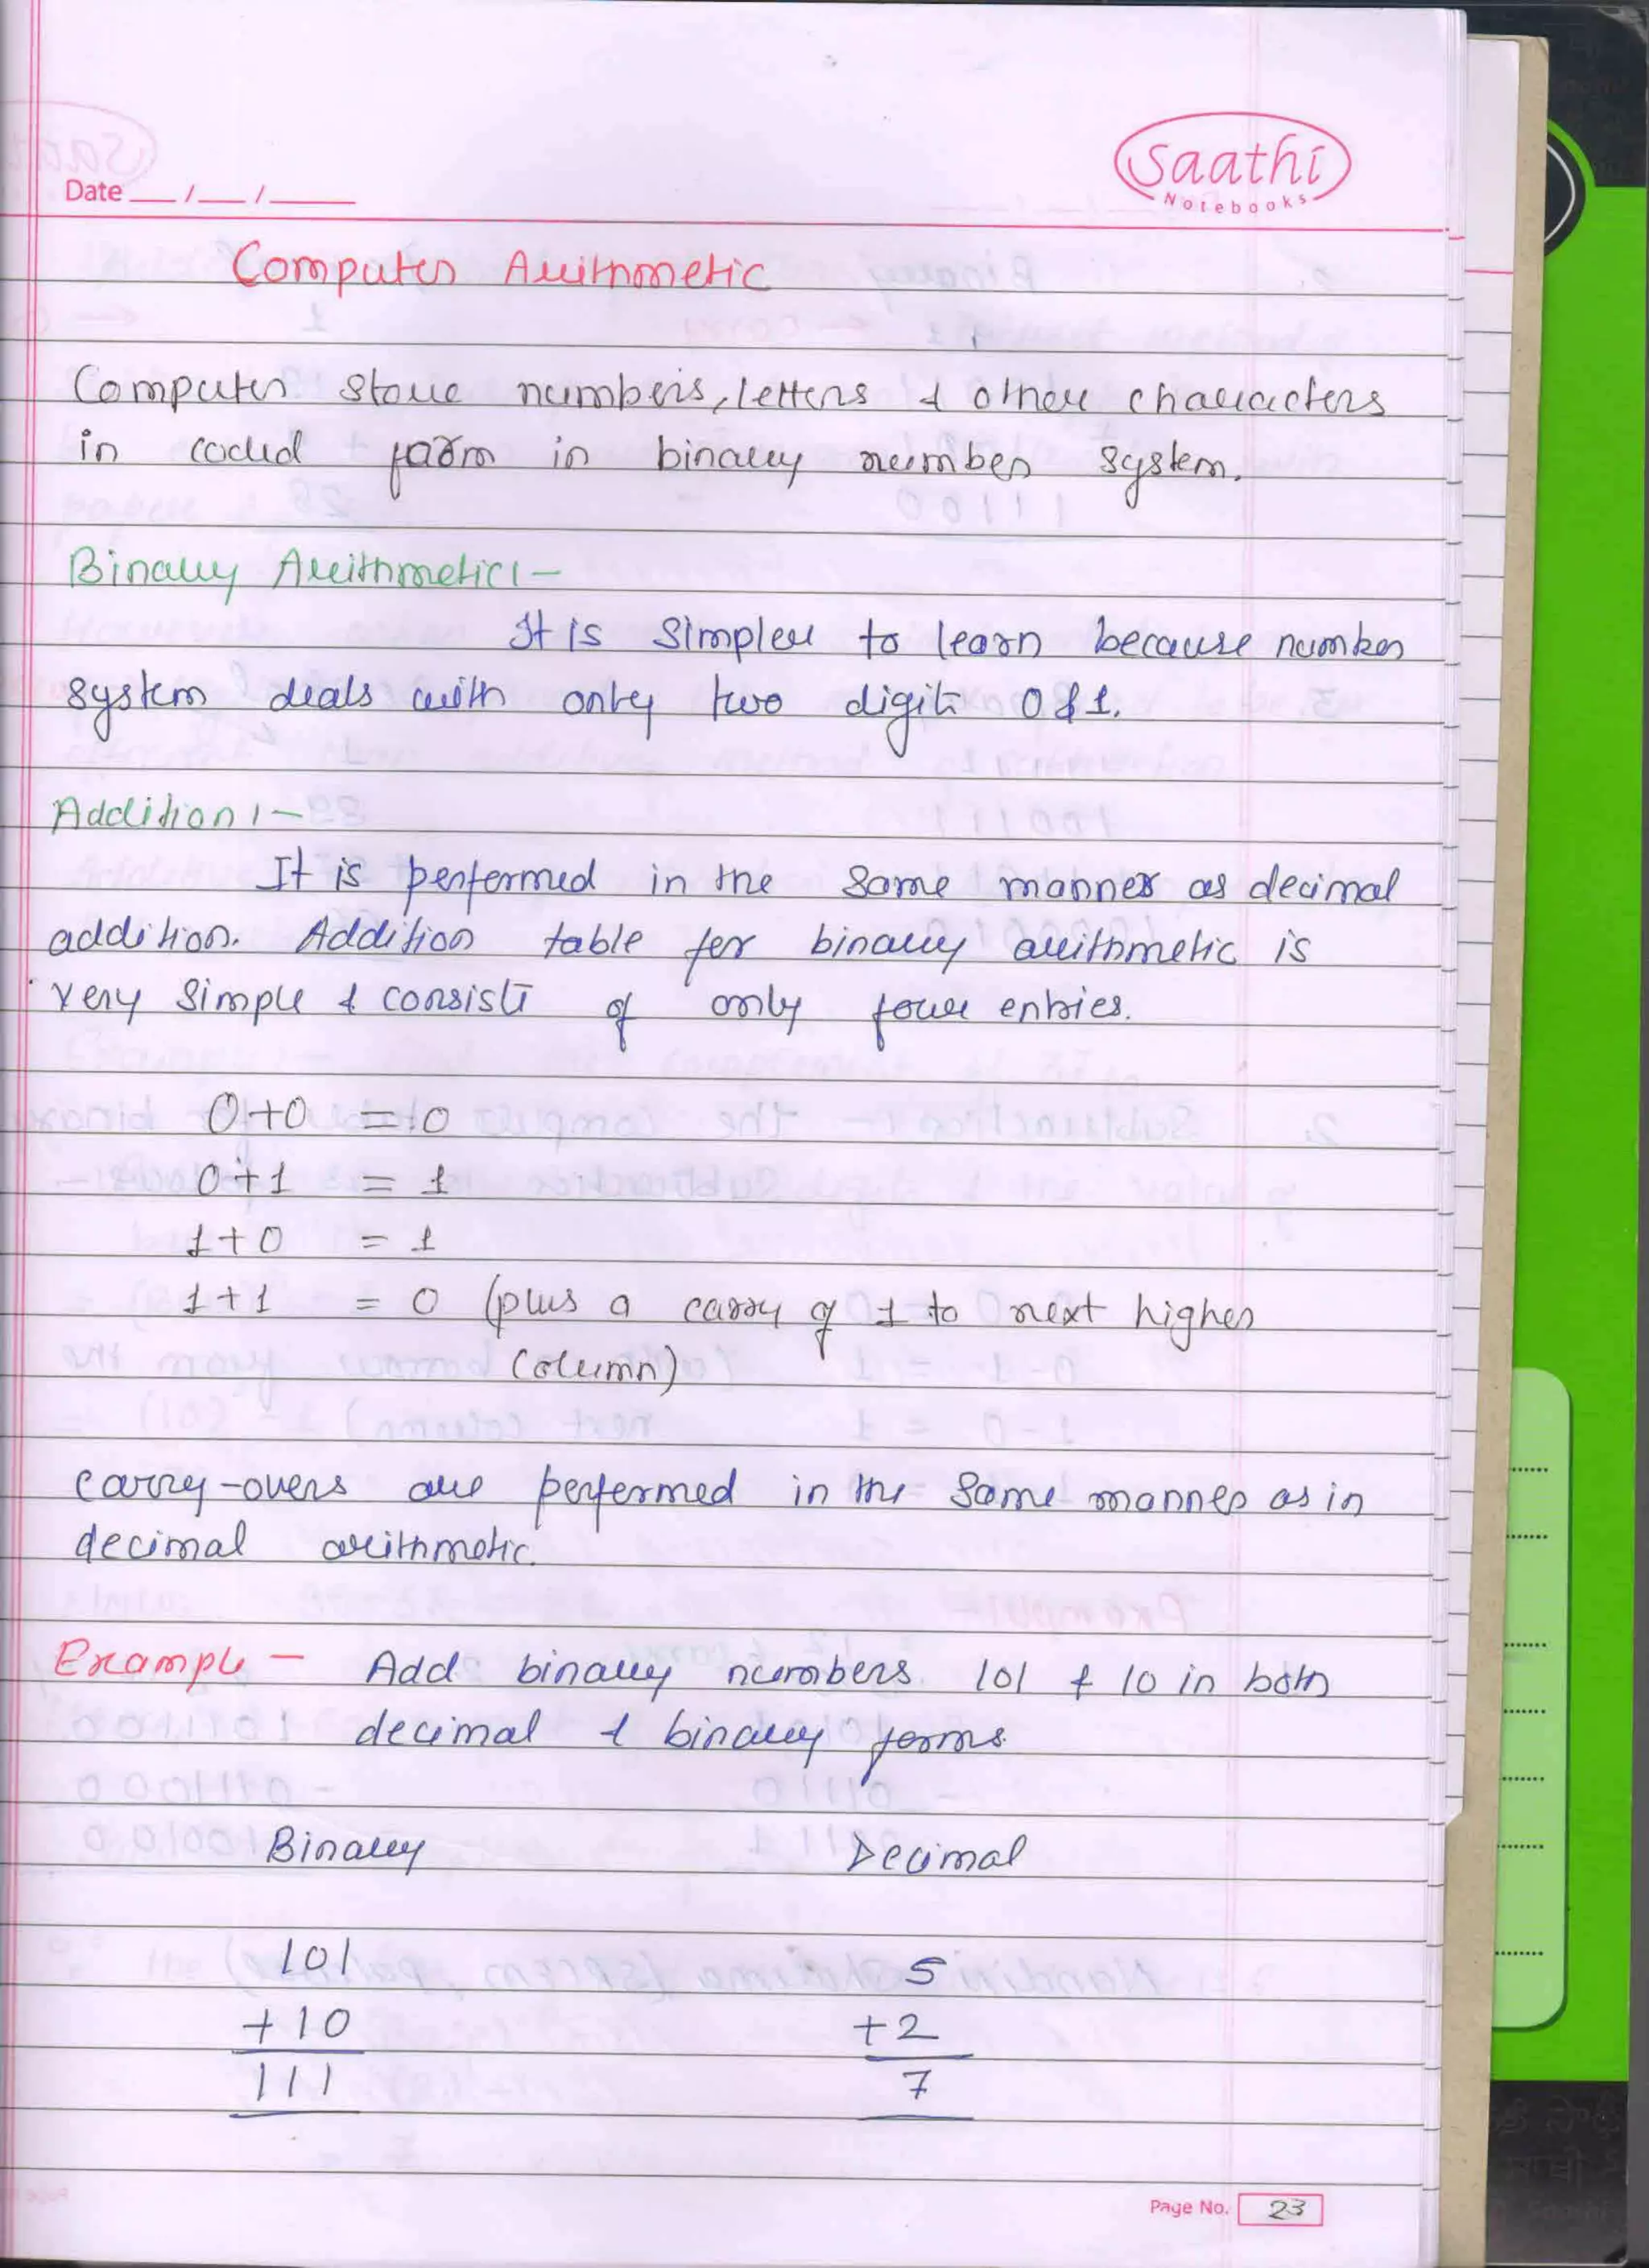 Saathi
Notebooks
Date ___/___/_____
Computer Arithmetic
Computer store numbers, letters & other characters
in coded form in binary number system.
Binary Arithmetic :-
It is simpler to learn because number
system deals with only two digits 0 & 1.
Addition :-
It is performed in the same manner as decimal
addition. Addition table for binary arithmetic is
very simple & consists of only four entries.
0+0 = 0
0+1 = 1
1+0 = 1
1+1 = 0 (plus a carry of 1 to next higher
column)
Carry-overs are performed in the same manner as in
decimal arithmetic.
Example - Add binary numbers 101 & 10 in both
decimal & binary forms.
Binary Decimal
101 5
+10 +2
111 7
Page No. 23